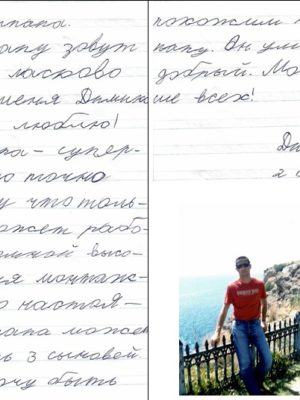 папа.
апу зовут
ласково
меня
люблю!
па - супер-
о точно
у что толь-
ожет рабо-
омной высо-
ия монтаж-
о настоя-
папа може
ь 3 сыновей.
очу быть
похожим
папу. Он ум
добрый. Мо
ше всех!
Ди
2